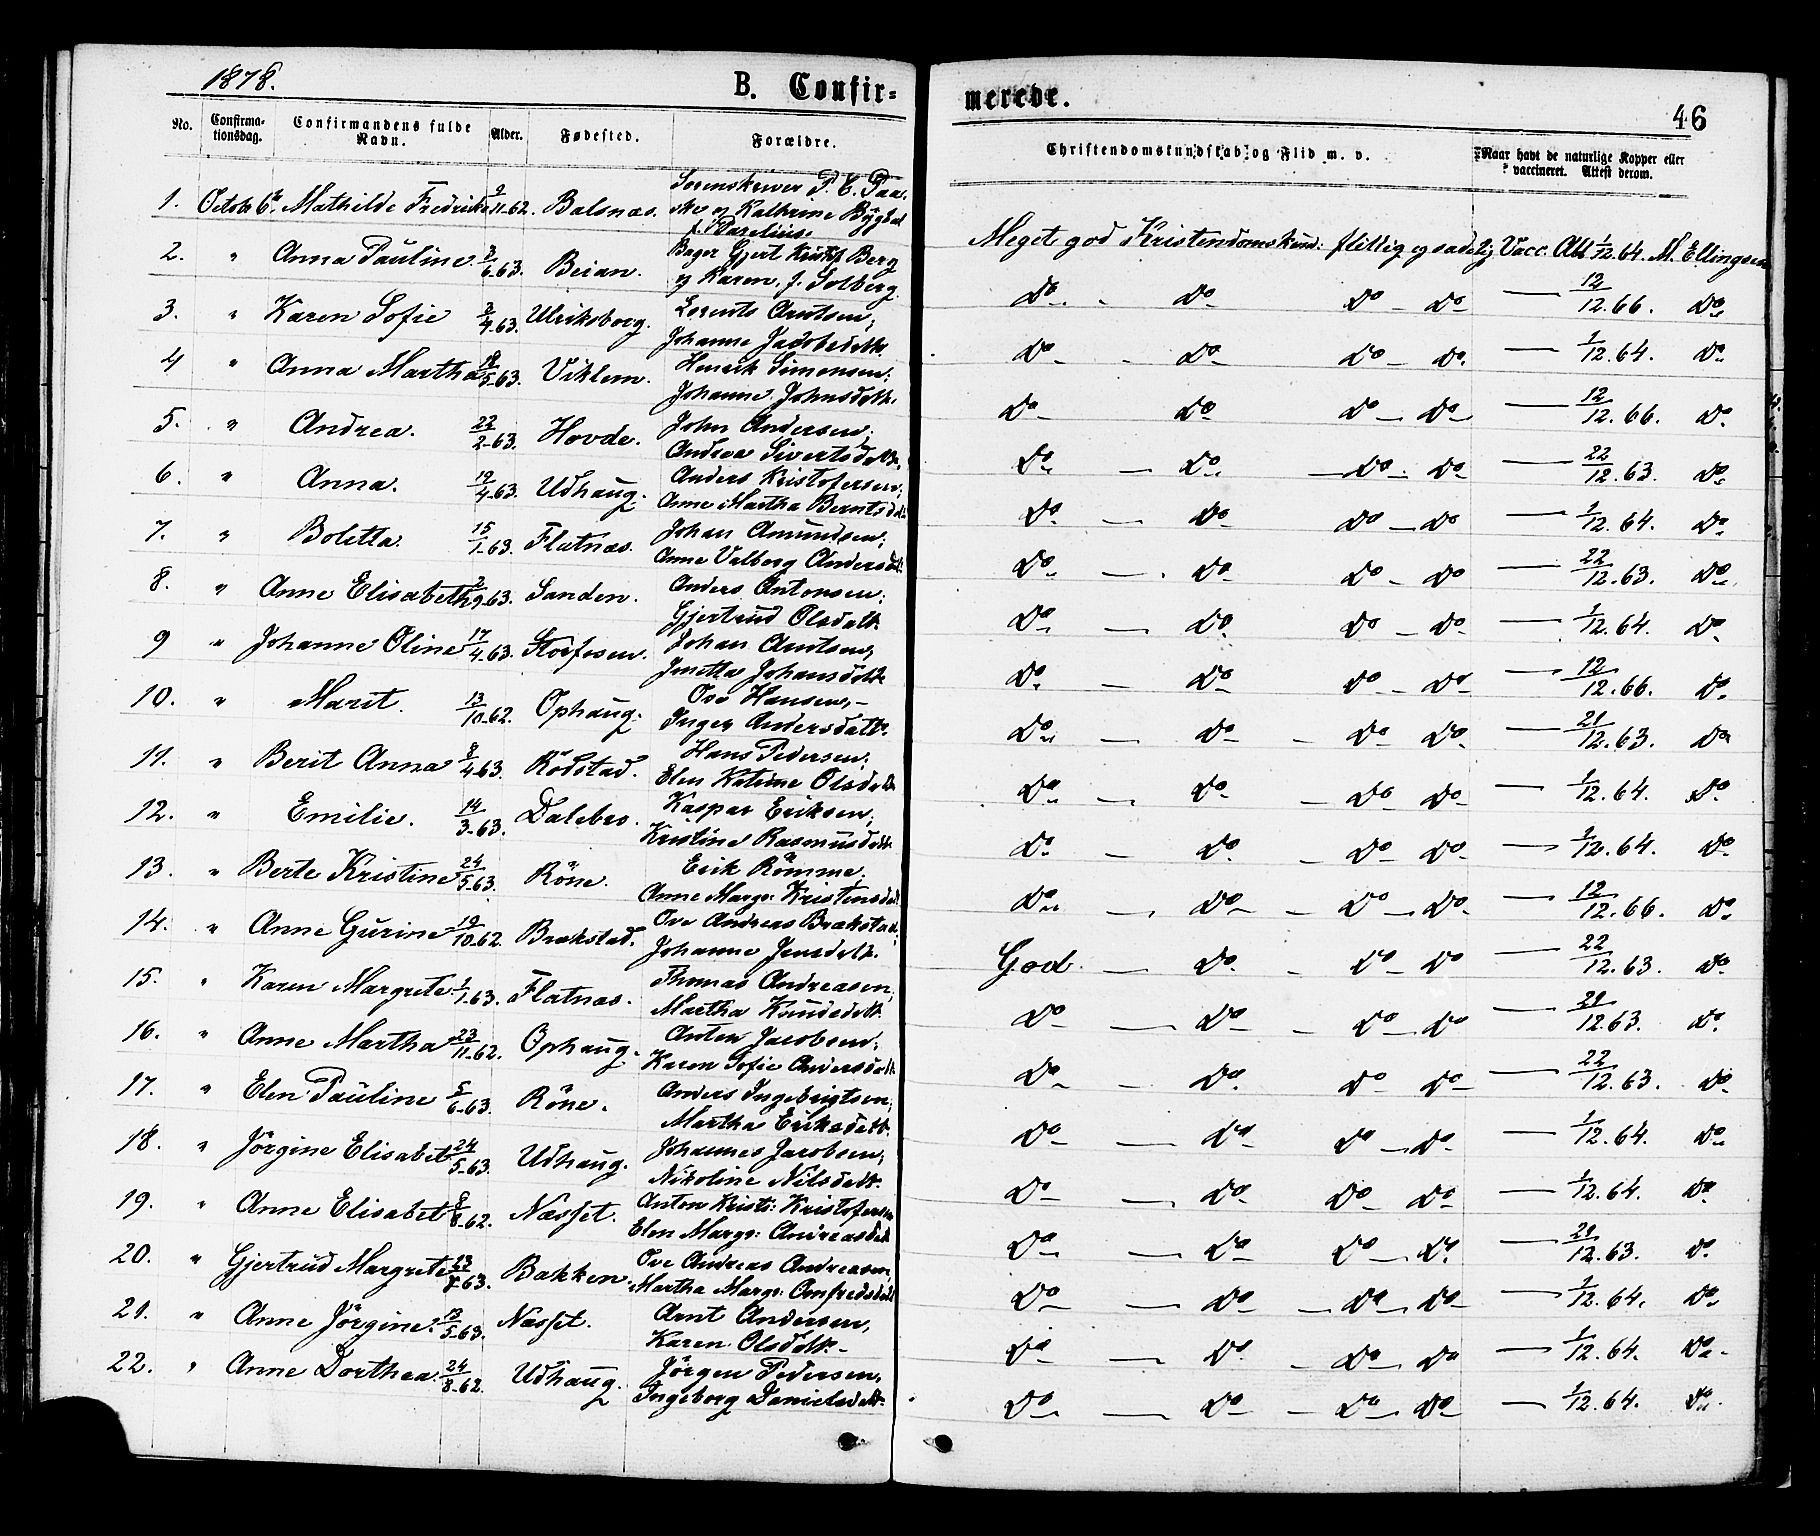 1878.
B. Confir-
merede.
46
No. Confirma-tionsdag. Confirmandens fulde Navn. Alder. Fødested. Forældre. Christendomskundskab og Flid m. v. Naar havt de naturlige Kopper eller vaccineret. Attest derom.
1. Octob 6te Mathilde Fredrike 9/11-62. Balsnæs. Sorenskriver P. C. Paaske og Kathrine Bygbal f. Parelius. Meget god Kristendomskund: flittig og sædelig Vacc. Att 1/12.64. M. Ellingsen
2. " Anna Pauline 3/6-63. Beian. Bager Gjert Kristf Berg og Karen, f. Solberg. Do - Do Do - Do — 12/12.66. Do
3. " Karen Sofie 3/4-63. Ulriksborg. Lorents Arntsen, Johanne Jacobsdatt. Do - Do Do - Do — 1/12.64. Do
4 " Anna Martha 18/5-63. Viklem. Henrik Simonsen, Johanne Johnsdatt. Do Do Do - Do — 12/12.66. Do
5. " Andrea. 22/2-63. Hovde. John Andersen, Andrea Sivertsdatt. Do — Do — Do - Do — 22/12.63. Do
6. " Anna. 19/4-63. Udhaug. Anders Kristofersen, Anne Martha Berntsdatt Do — Do Do — Do — 1/12.64. Do
7. " Boletta. 15/1-63. Flatnæs. Johan Amundsen, Anne Valborg Andersdatt Do — Do Do - Do — 22/12.63. Do
8. " Anne Elisabeth 2/9-63. Sanden. Anders Antonsen, Gjertrud Olsdatt. Do — Do Do - Do — 1/12.64. Do
9 " Johanne Oline 17/4-63. Storfosen. Johan Arntsen, Jenetta Johansdatt Do — Do Do - Do — 12/12.66. Do
10. " Marit. 13/10-62. Ophaug. Ove Hansen, - Inger Andersdatt. Do — Do — Do Do — 21/12.63. Do
11. " Berit Anna 8/4-63. Rödstad. Hans Pedersen, Elen Katrine Olsdatt Do — Do — Do Do — 1/12.64. Do
12. " Emilie. 14/3-63. Dalebro. Kaspar Eriksen, Kristine Rasmusdatt Do — Do — Do Do — 1/12.64. Do
13. " Berte Kristine 24/5-63. Röne. Erik Römme, Anne Margr: Kristensdatt Do — Do — Do — Do — 12/12.66. Do
14. " Anne Gurine 19/10-62. Brækstad. Ove Andreas Brækstad, Johanne Jensdatt. God. — Do — Do - Do — 22/12.63. Do
15. " Karen Margrete 1/1-63. Flatnæs. Thomas Andreasen, Martha Knudsdatt. Do — Do — Do - Do — 21/12.63. Do
16. " Anne Martha 23/11-62. Ophaug. Anton Jacobsen, Karen Sofie Andersdatt Do — Do Do - Do — 22/12.63. Do
17. " Elen Pauline 5/6-63. Röne. Anders Ingebrigtsen, Martha Eriksdatt. Do — Do Do — Do — 1/12.64. Do
18. " Jörgine Elisabet 24/5-63. Udhaug. Johannes Jacobsen, Nikoline Nilsdatt. Do — Do Do Do — 1/12.64. Do
19. " Anne Elisabet 9/8-62. Næsset. Anton Kristi: Kristofersen Elen Margr: Andreasdatt Do — Do Do — Do — 21/12.63. Do
20. " Gjertrud Margrete Bakken. Ove Andreas Andreasen, Martha Margr: Arnfredsdatt Do — Do — Do — Do — 1/12.64. Do
21. " Anne Jörgine. Næsset. Arnt Andersen, Karen Olsdatt - Do — Do — Do — Do — 1/12.64. Do
22. " Anne Dorthea. 24/8-62. Udhaug. Jörgen Pedersen, Ingeborg Danielsdatt. Do — Do — Do — Do — 1/12.64. Do